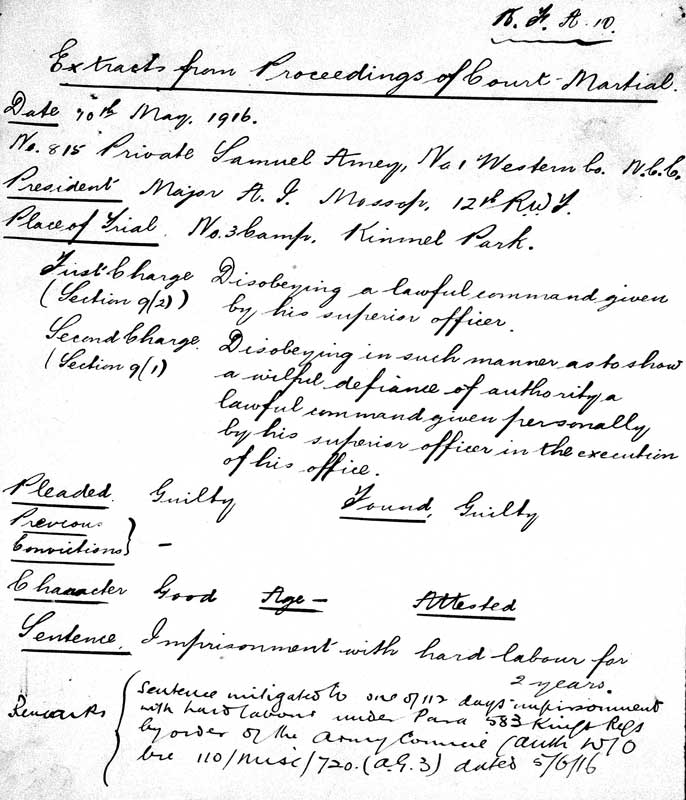 R. F. A. 10.
Extracts from Proceedings of Court-Martial.
Date 20th May. 1916.
No. 815 Private Samuel Amey, No 1 Western Co. N.C.C.
President Major A. J. Mossop, 12th R.W.F.
Place of Trial. No. 3 Camp, Kinmel Park.
First Charge Disobeying a lawful command given
(Section 9(2)) by his superior officer.
Second Charge. Disobeying in such manner as to show
(Section 9(1) a wilful defiance of authority a
lawful command given personally
by his superior officer in the execution
of his office.
Pleaded. Guilty Found, Guilty
Previous
Convictions} -
Character Good Age - Attested
Sentence. Imprisonment with hard labour for
2 years.
Remarks (Sentence mitigated to one of 112 days imprisonment
with hard labour under Para 583 Kings Regs
by order of the Army Council (auth W/O
110/Misc/720. (A.G.3) dated 5/6/16